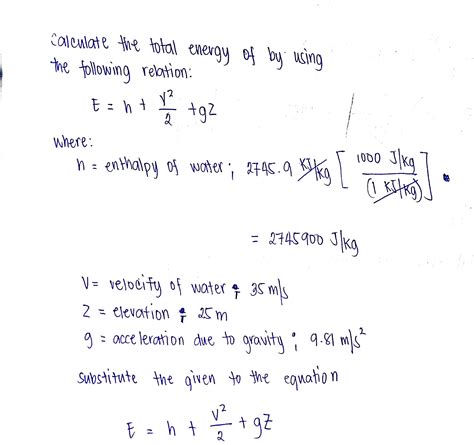 Calculate the total energy of by using
the following relation:
E = h + V²/2 + gZ
where:
h = enthalpy of water ; 2745.9 KJ/kg [ 1000 J/kg / (1 KJ/kg) ] .
= 2745900 J/kg
V = velocity of water ; 35 m/s
Z = elevation ; 25 m
g = acceleration due to gravity ; 9.81 m/s²
substitute the given to the equation
E = h + V²/2 + gZ